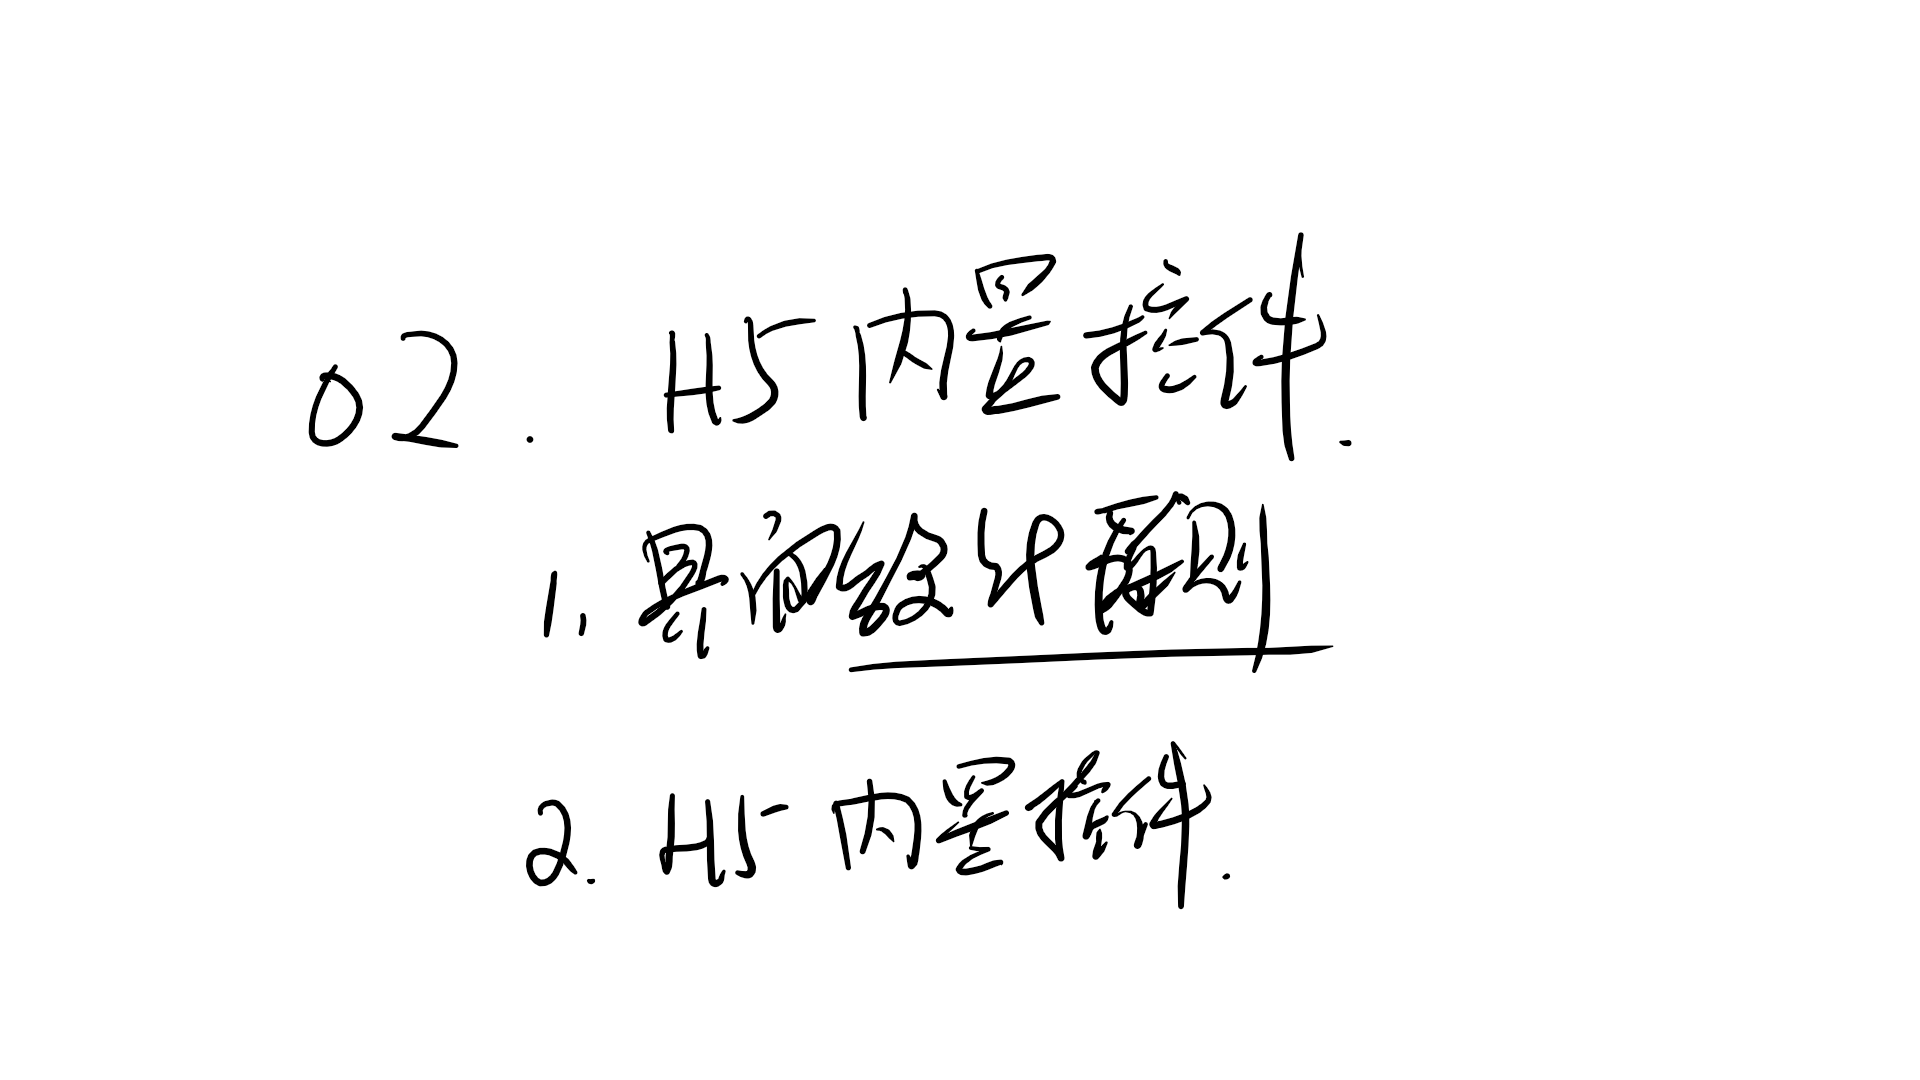 02. H5内置控件.
1. 界面设计原则
2. H5内置控件.